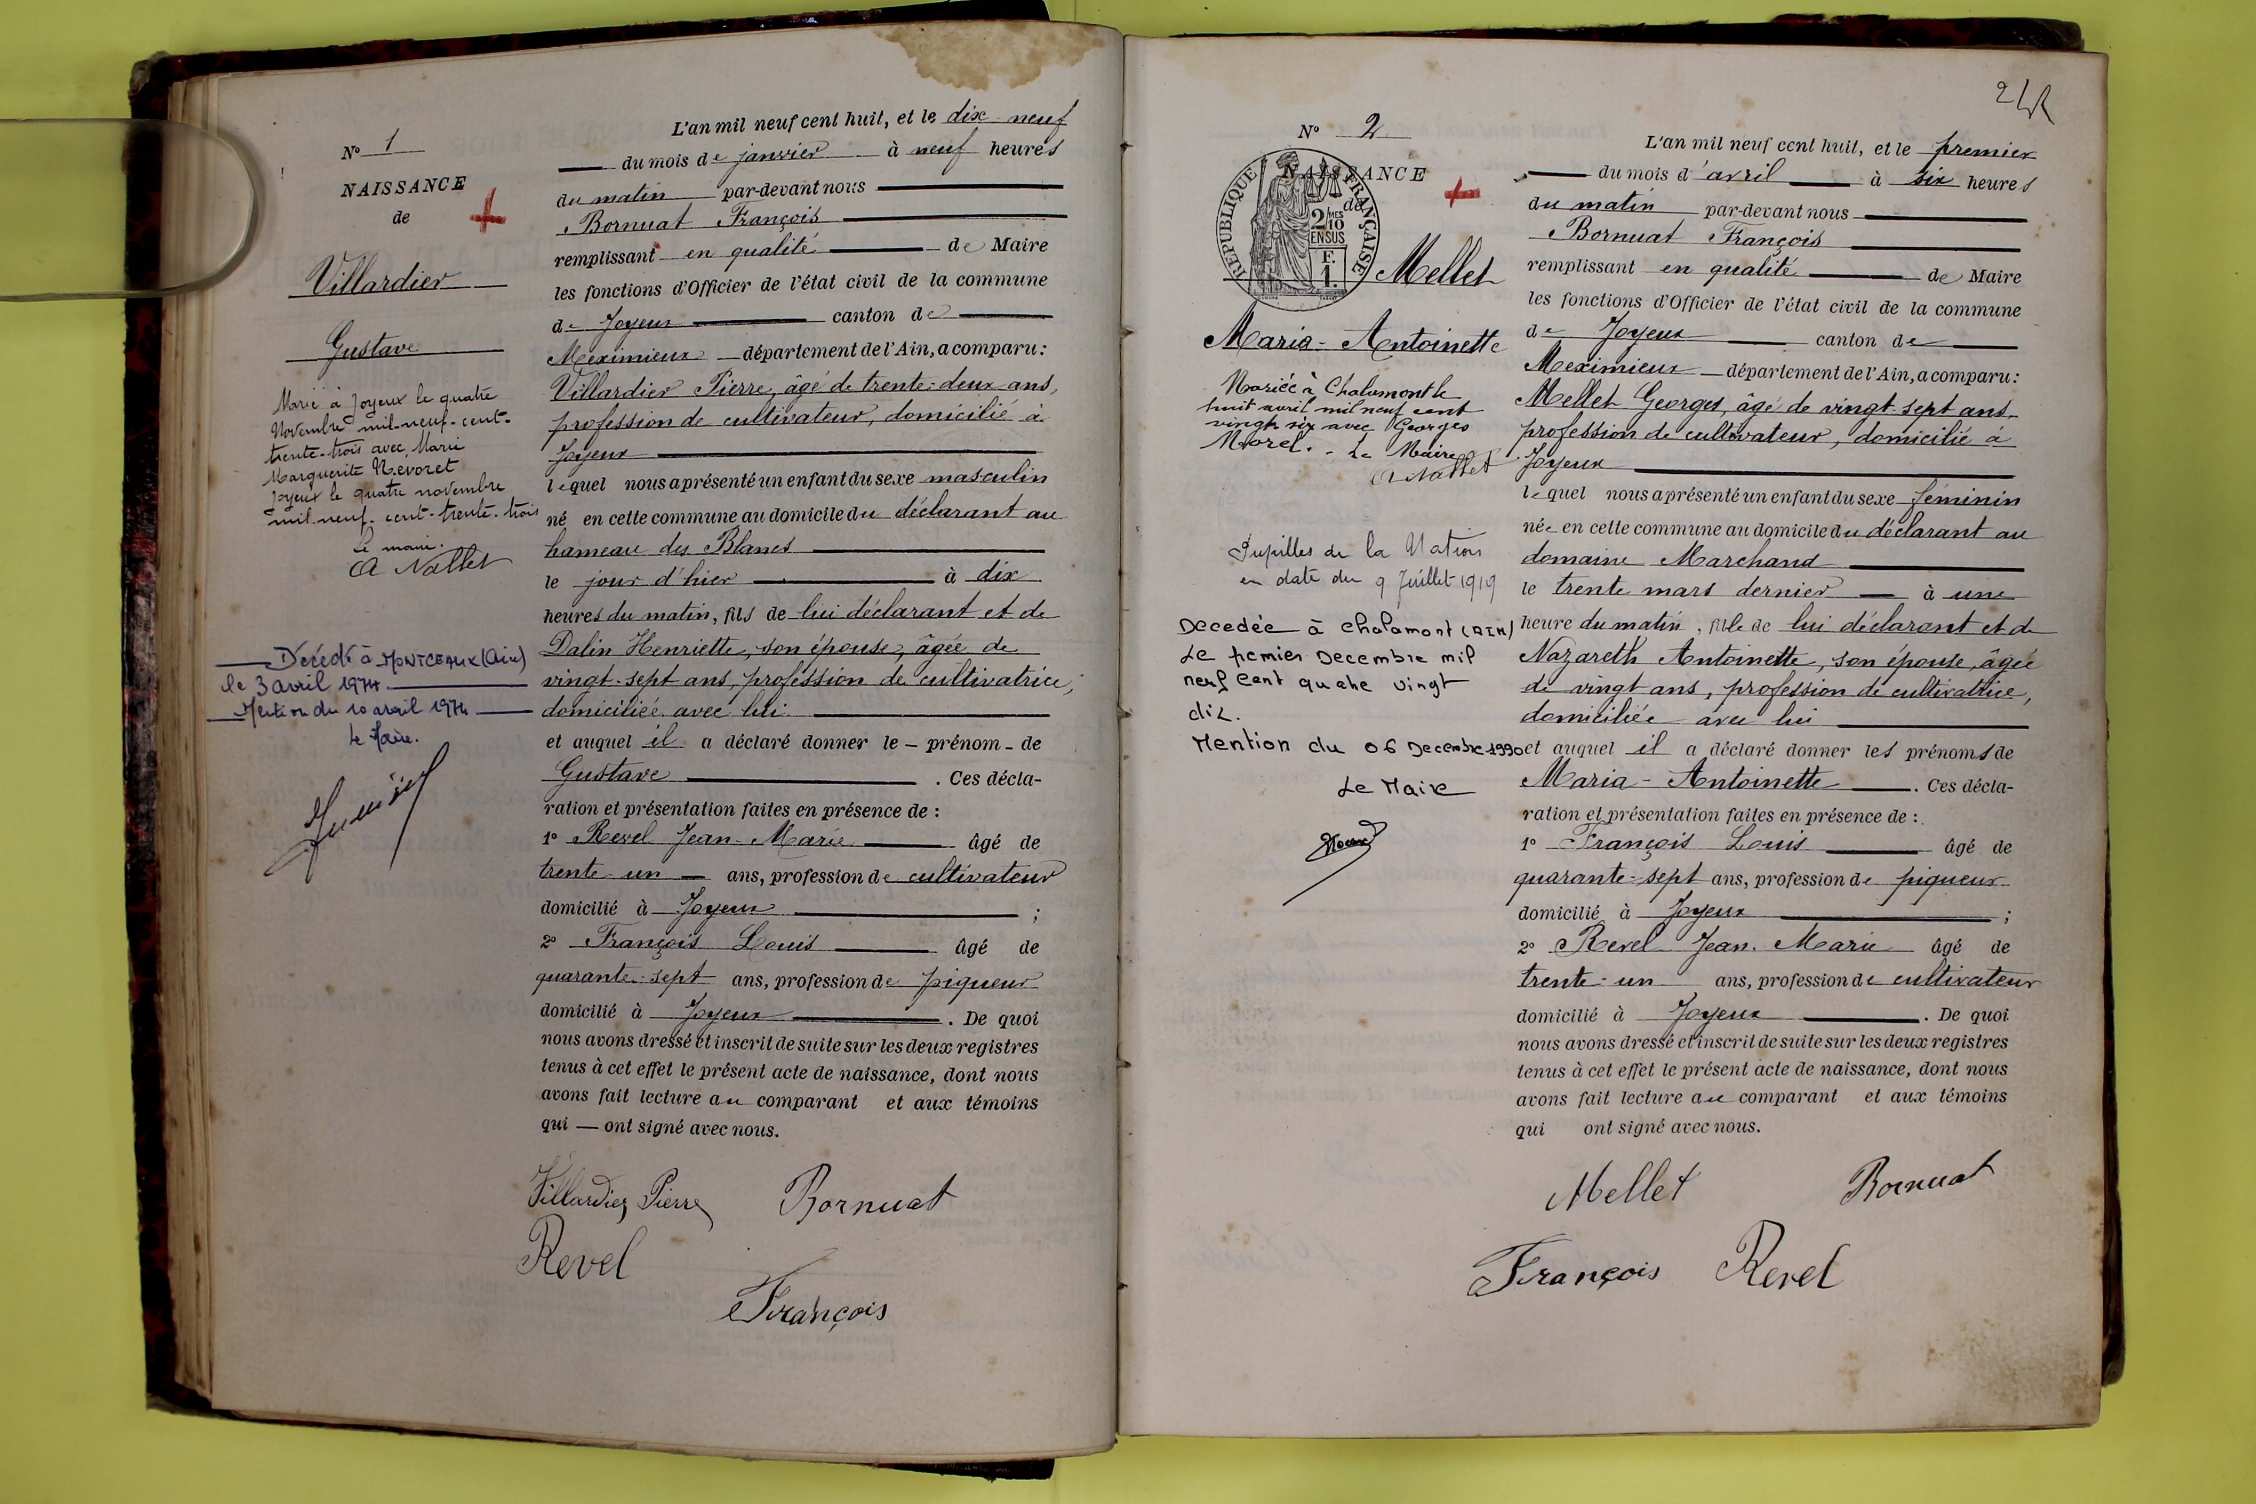 N° 1
NAISSANCE
de
Villardier
Gustave
Marié à Joyeux le quatre
Novembre mil-neuf-cent-
trente-trois avec Marie
Marguerite Nevoret
Joyeux le quatre novembre
mil-neuf-cent-trente-trois
Le maire.
A Nallet
Décédé à MONTCEAUX (Ain)
le 3 avril 1974
Mention du 10 avril 1974
Le Maire.
L'an mil neuf cent huit, et le dix-neuf
du mois de janvier à neuf heures
du matin par-devant nous
Bornuat François
remplissant en qualité de Maire
les fonctions d'Officier de l'état civil de la commune
de Joyeux canton de
Meximieux département de l'Ain, a comparu:
Villardier Pierre, âgé de trente-deux ans,
profession de cultivateur, domicilié à
Joyeux
lequel nous a présenté un enfant du sexe masculin
né en cette commune au domicile du déclarant au
hameau des Blancs
le jour d'hier à dix
heures du matin, fils de lui déclarant et de
Dalin Henriette, son épouse, âgée de
vingt-sept ans, profession de cultivatrice,
domiciliée avec lui
et auquel il a déclaré donner le - prénom - de
Gustave. Ces décla-
ration et présentation faites en présence de :
1° Revel Jean-Marie âgé de
trente-un ans, profession de cultivateur
domicilié à Joyeux ;
2° François Louis âgé de
quarante-sept ans, profession de piqueur
domicilié à Joyeux. De quoi
nous avons dressé et inscrit de suite sur les deux registres
tenus à cet effet le présent acte de naissance, dont nous
avons fait lecture au comparant et aux témoins
qui — ont signé avec nous.
Villardier Pierre Bornuat
Revel
François
N° 2
NAISSANCE
de
RÉPUBLIQUE FRANÇAISE
2/10 MES
EN SUS
F.
1.
Mellet
Maria-Antoinette
Mariée à Chalamont le
huit avril mil neuf cent
vingt six avec Georges
Morel. - Le Maire
A Nallet
Pupilles de la Nation
en date du 9 Juillet 1919
Decedée à chalamont (AIN)
Le premier Decembre mil
neuf Cent quatre vingt
dix.
Mention du 06 Decembre 1990
Le Maire
L'an mil neuf cent huit, et le premier
du mois d'avril à six heures
du matin par-devant nous
Bornuat François
remplissant en qualité de Maire
les fonctions d'Officier de l'état civil de la commune
de Joyeux canton de
Meximieux département de l'Ain, a comparu:
Mellet Georges, âgé de vingt-sept ans,
profession de cultivateur, domicilié à
Joyeux
lequel nous a présenté un enfant du sexe féminin
née en cette commune au domicile du déclarant au
domaine Marchand
le trente mars dernier à une
heure du matin, fille de lui déclarant et de
Nazareth Antoinette, son épouse, âgée
de vingt ans, profession de cultivatrice,
domiciliée avec lui
et auquel il a déclaré donner les prénoms de
Maria-Antoinette. Ces décla-
ration et présentation faites en présence de :
1° François Louis âgé de
quarante-sept ans, profession de piqueur
domicilié à Joyeux ;
2° Revel Jean-Marie âgé de
trente-un ans, profession de cultivateur
domicilié à Joyeux. De quoi
nous avons dressé et inscrit de suite sur les deux registres
tenus à cet effet le présent acte de naissance, dont nous
avons fait lecture au comparant et aux témoins
qui ont signé avec nous.
Mellet Bornuat
François Revel